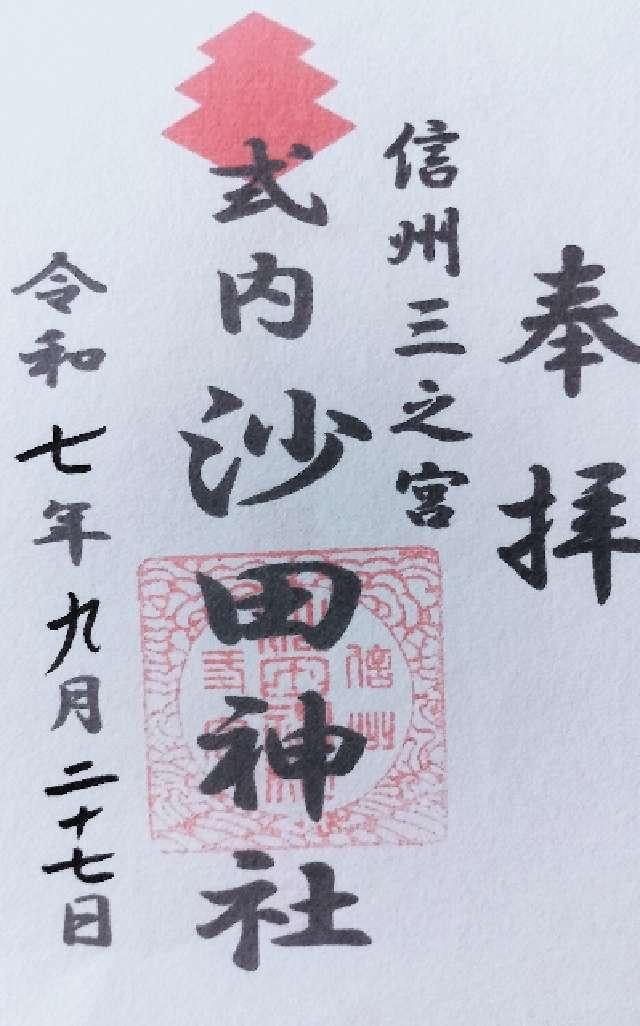 奉拝
信州三之宮
式内沙田神社
令和七年九月二十七日